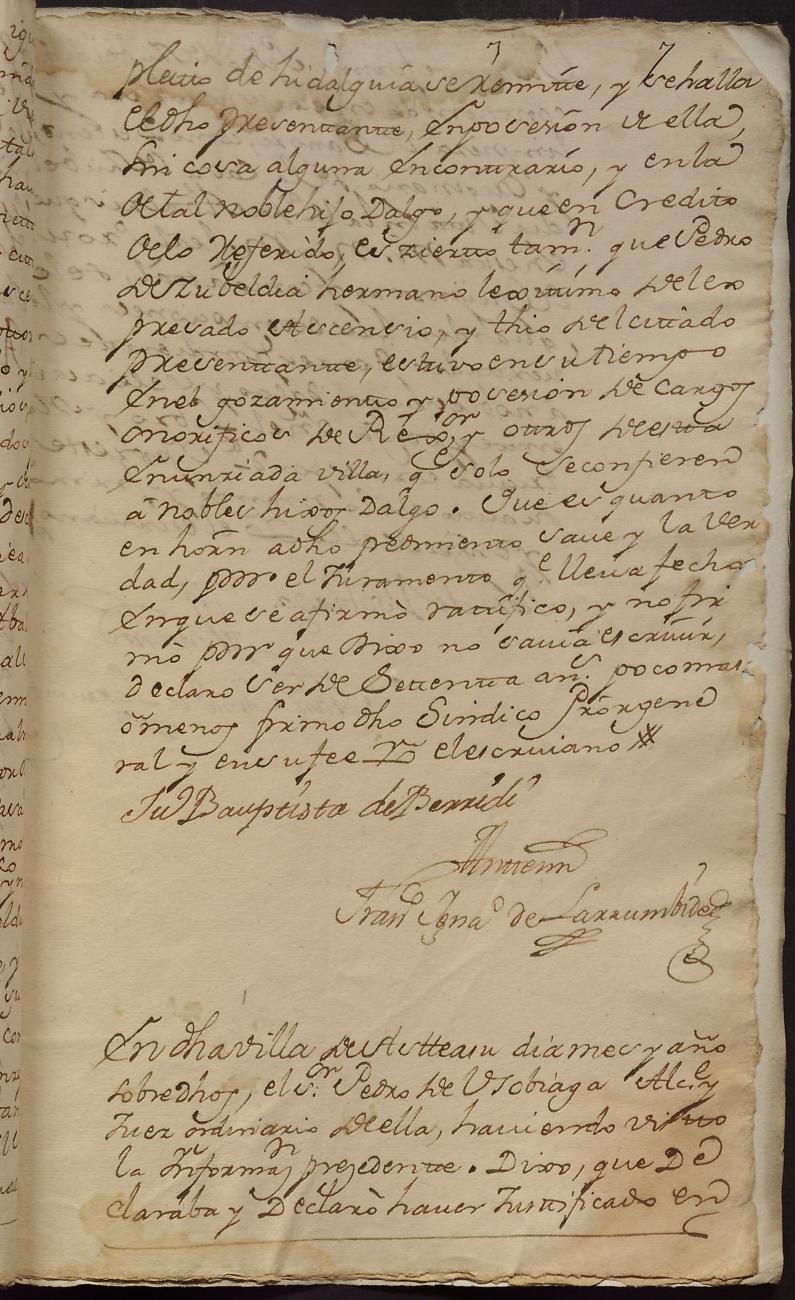 pleito de hidalguia se Remite, y se halla
el dho presentante, en posesion de ella,
sin cosa alguna en contrario, y en la
de tal noble hijo Dalgo, y que en Credito
de lo Referido, es zierto tamn. que Pedro
de Zubeldia hermano lexitimo del ex
presado Ascensio, y thio del citado
presentante, estuvo en su tiempo
en el gozamiento y posesion de cargos
onorificos de Rexor, y otros de esta
enunziada villa, qe solo se confieren
a nobles hixos Dalgo. Que es quanto
en horn adho pedimiento save y la ver
dad, por el Juramento qe lleva fecho
en que se afirmò ratifico, y no fir
mò por que Dixo no savia escrivir,
declaro ser de Setenta ans. poco mas
ò menos firmo dho Sindico Pror gene
ral y en su fee Yo el escrivano
Ju Bauptista de Berridi
Antemi
Franco Ignao de Larrumbide
En dha villa de Asteasu dia mes y año
sobredhos, el sr. Pedro de Usobiaga Alce y
Juez ordinario de ella, haviendo visto
la Informan prezedente. Dixo, que De
claraba y Declarò haver Justificado en